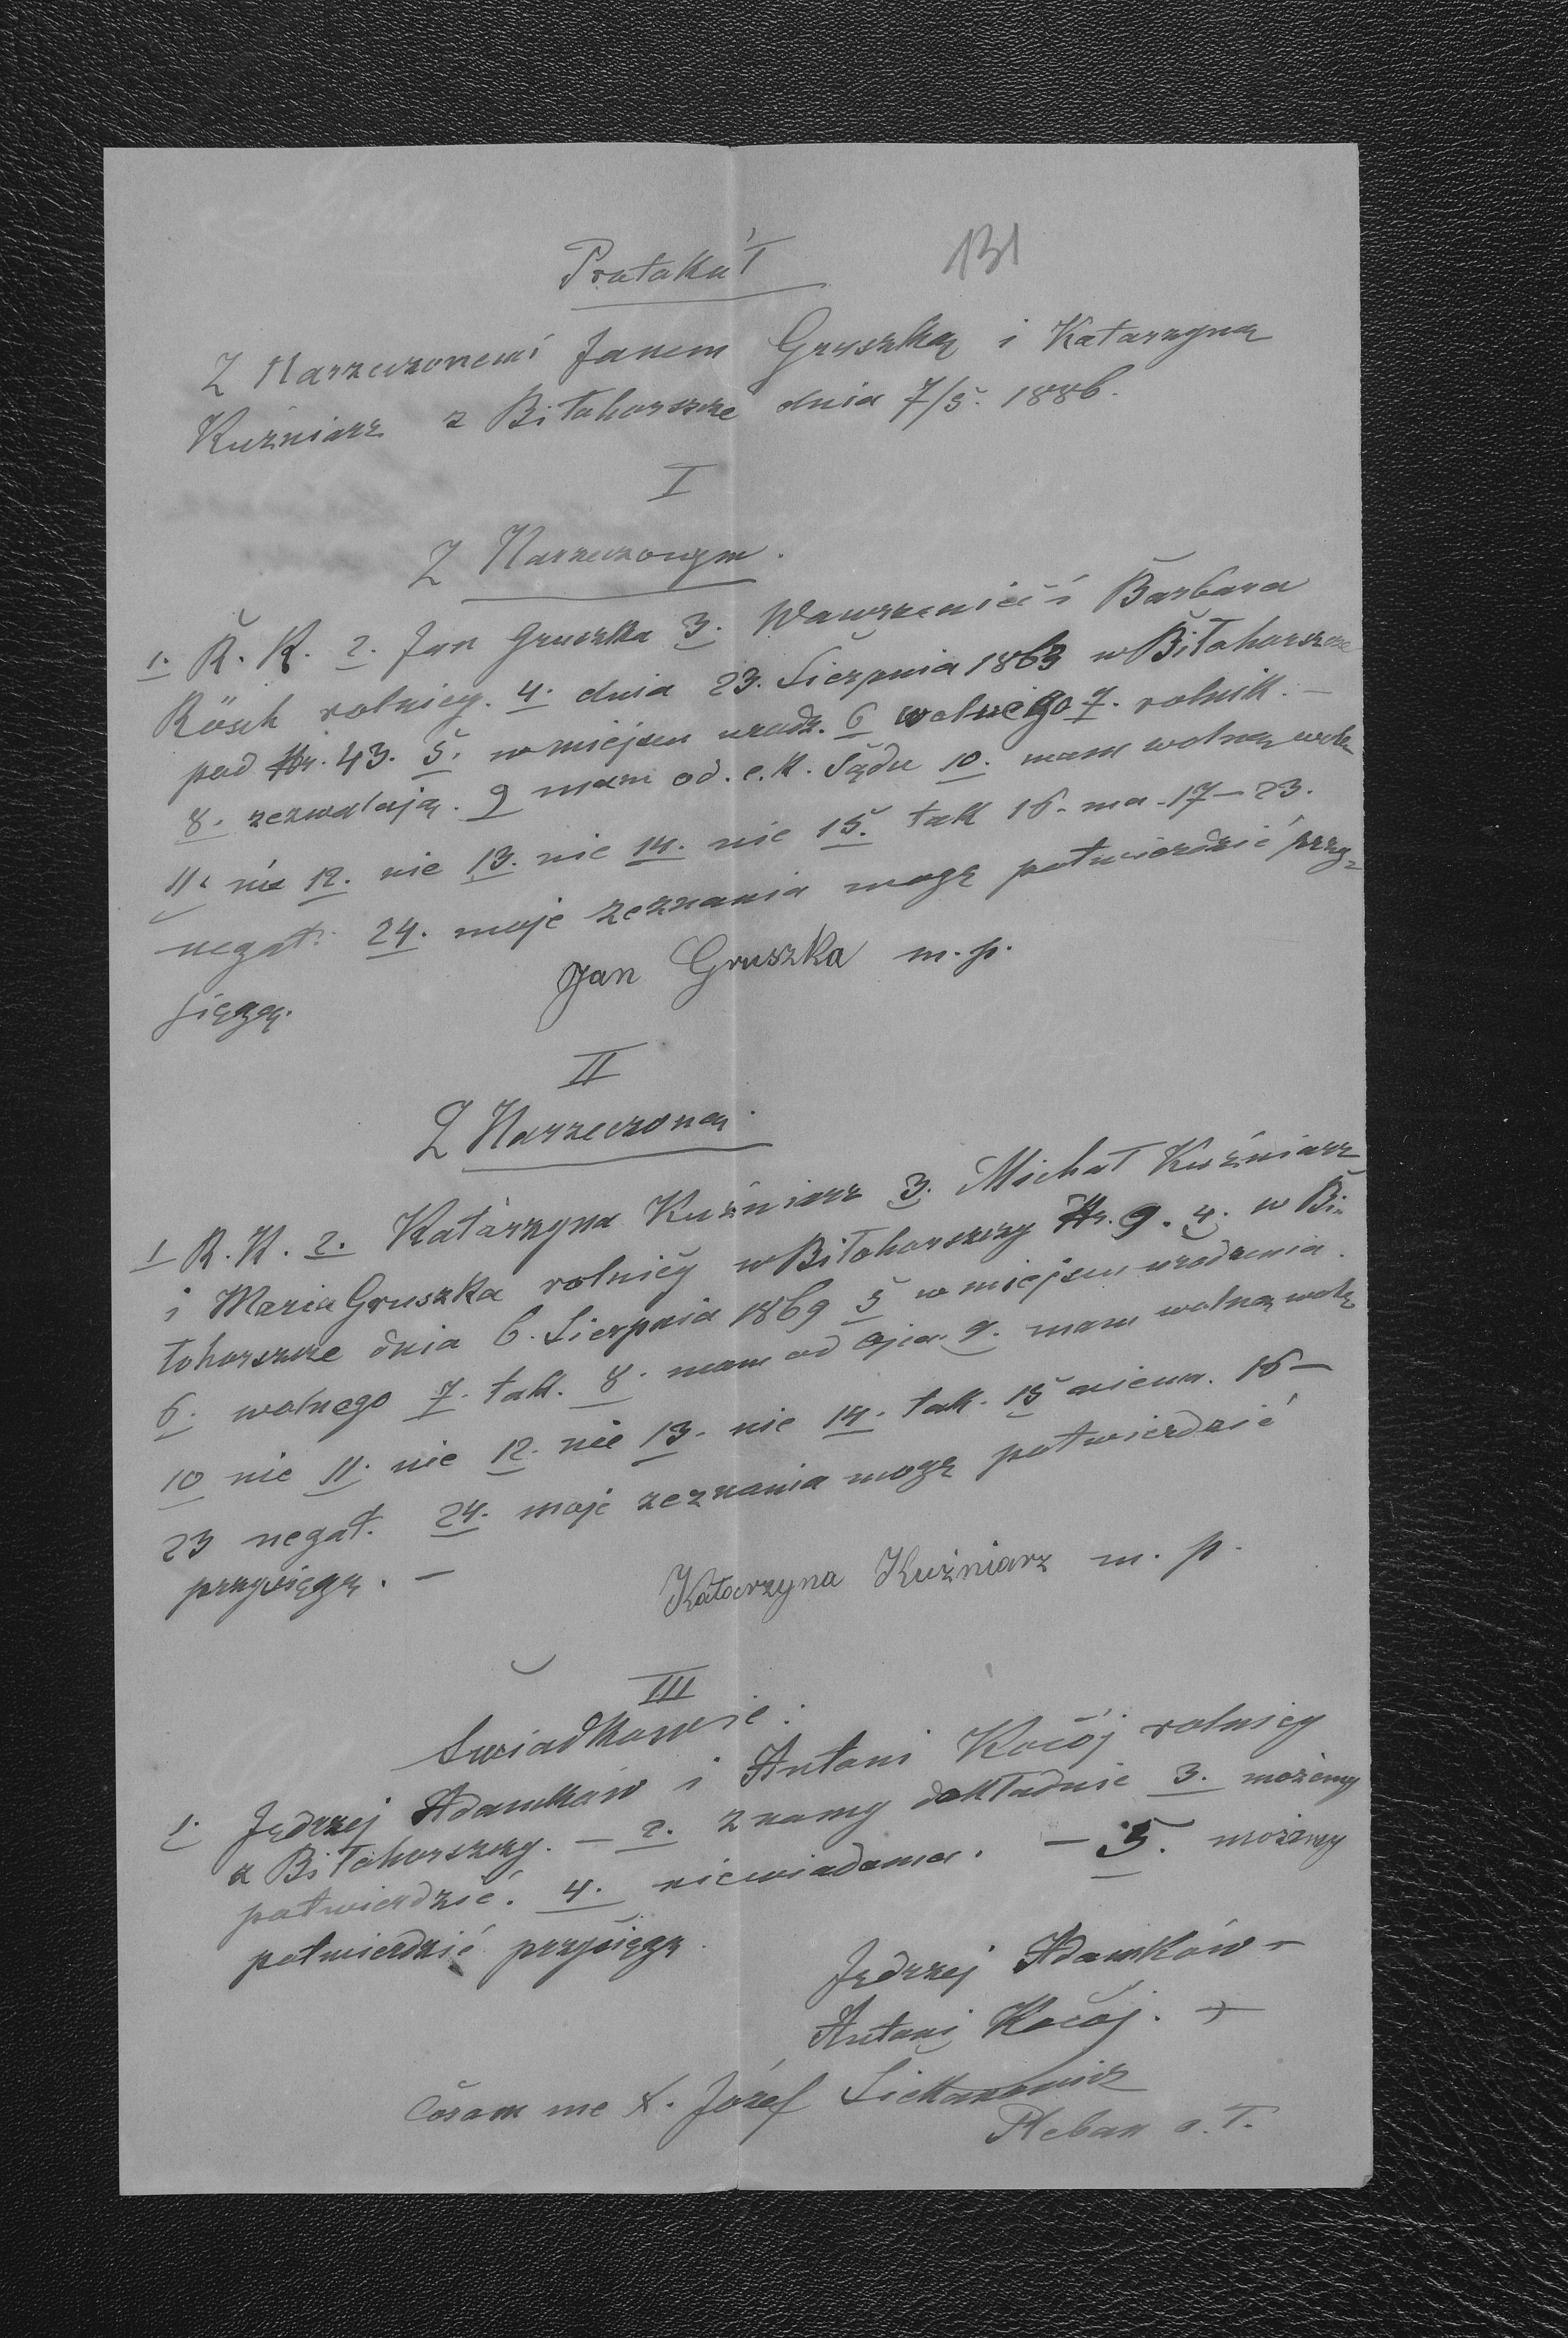 Protokół
131
Z Narzeczonemi Janem Gruszką i Katarzyną
Kuźniarz z Biłohorszcze dnia 7/5. 1886.
I
Z Narzeczonym.
1. R. K. 2. Jan Gruszka 3. Wawrzeniec i Barbara
Rösch rolnicy. 4. dnia 23. Sierpnia 1863 w Biłohorszcze
pod Nr. 43. 5. w miejscu urodz. 6 wolnego 7. rolnik. –
8. zezwalają. 9 mam od. c. k. Sądu 10. mam wolną wolę
11. nie 12. nie 13. nie 14. nie 15. tak 16. ma 17 – 23.
negat. 24. moje zeznania mogę potwierdzić przy-
sięgą.
Jan Gruszka m. p.
II
Z Narzeczoną.
1 R. K. 2. Katarzyna Kuźniarz 3. Michał Kuźniarz
i Maria Gruszka rolnicy w Biłohorszczy Nr. 9. 4. w Bi-
łohorszcze dnia 6. Sierpnia 1869 5 w miejscu urodzenia.
6. wolnego 7. tak. 8. mam od ojca. 9. mam wolną wolę
10 nie 11. nie 12. nie 13. nie 14. tak. 15 niema. 16 –
23 negat. 24. moje zeznania mogę potwierdzić
przysięgą. –
Katarzyna Kuźniarz m. p.
III
Świadkowie.
1. Jędrzej Adamków i Antoni Kocój rolnicy
z Biłohorszczy. – 2. znamy dokładnie 3. możemy
potwierdzić. 4. niewiadoma. – 5. możemy
potwierdzić przysięgą.
Jędrzej Adamków +
Antoni Kocój. +
Coram me X. Józef
Pleban o. ł.